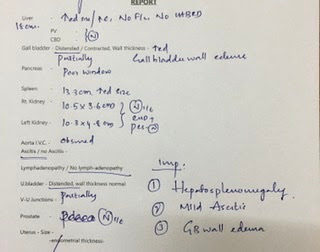 REPORT
Liver - ↑ed in / P.E, No Flu. No IHBRD
18cm.
PV
CBD (N)
Gall bladder - Distended / Contracted, Wall thickness - ↑ed
partially Gall bladder wall edema
Pancreas - Poor window
Spleen - 13.3cm ↑ed size
Rt. Kidney - 10.5 x 3.6cm (N) size
Left Kidney - 10.3 x 4.8cm
Aorta I.V.C. - obscured
Ascitis / no Ascitis -
Lymphadenopathy / No lymph-adenopathy Imp.
U.bladder - Distended, wall thickness normal ① Hepatosplenomegaly
V-U Junctions - partially
② Mild Ascitis
Prostate (N) size
③ GB wall edema
Uterus - Size -
-endometrial thickness-